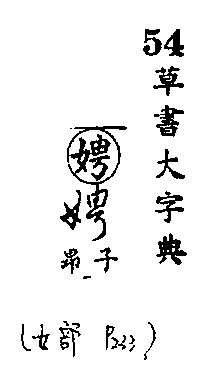 54草書大字典
娉
娉
子昂
(女部 P233)